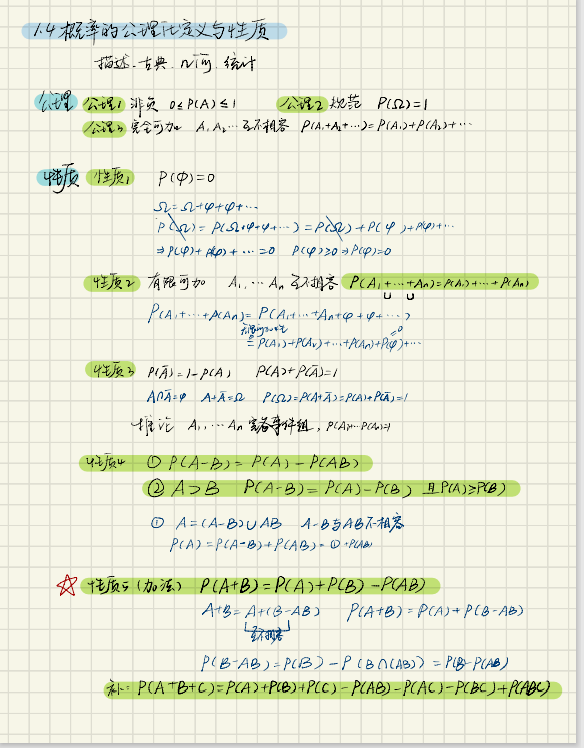 1.4 概率的公理化定义与性质
描述、古典、几何、统计
公理 公理1 非负 0≤P(A)≤1 公理2 规范 P(Ω)=1
公理3 完全可加 A₁,A₂… 互不相容 P(A₁+A₂+…)=P(A₁)+P(A₂)+…
性质 性质1 P(φ)=0
Ω=Ω+φ+φ+…
P(Ω)=P(Ω+φ+φ+…)=P(Ω)+P(φ)+P(φ)+…
⇒P(φ)+P(φ)+…=0 P(φ)≥0⇒P(φ)=0
性质2 有限可加 A₁,…An 互不相容 P(A₁+…+An)=P(A₁)+…+P(An)
P(A₁+…+P(An)=P(A₁+…+An+φ+φ+…)
=P(A₁)+P(A₂)+…+P(An)+P(φ)+… =0
性质3 P(Ā)=1-P(A) P(A)+P(Ā)=1
A∩Ā=φ A+Ā=Ω P(Ω)=P(A+Ā)=P(A)+P(Ā)=1
推论 A₁,…An 完备事件组, P(A₁)…P(An)=1
性质4 ① P(A-B)=P(A)-P(AB)
② A⊃B P(A-B)=P(A)-P(B) 且P(A)≥P(B)
① A=(A-B)∪AB A-B与AB不相容
P(A)=P(A-B)+P(AB)=①+P(AB)
☆ 性质5 (加法) P(A+B)=P(A)+P(B)-P(AB)
A+B=A+(B-AB) P(A+B)=P(A)+P(B-AB)
互不相容
P(B-AB)=P(B)-P(B∩(AB))=P(B)-P(AB)
P(A+B+C)=P(A)+P(B)+P(C)-P(AB)-P(AC)-P(BC)+P(ABC)